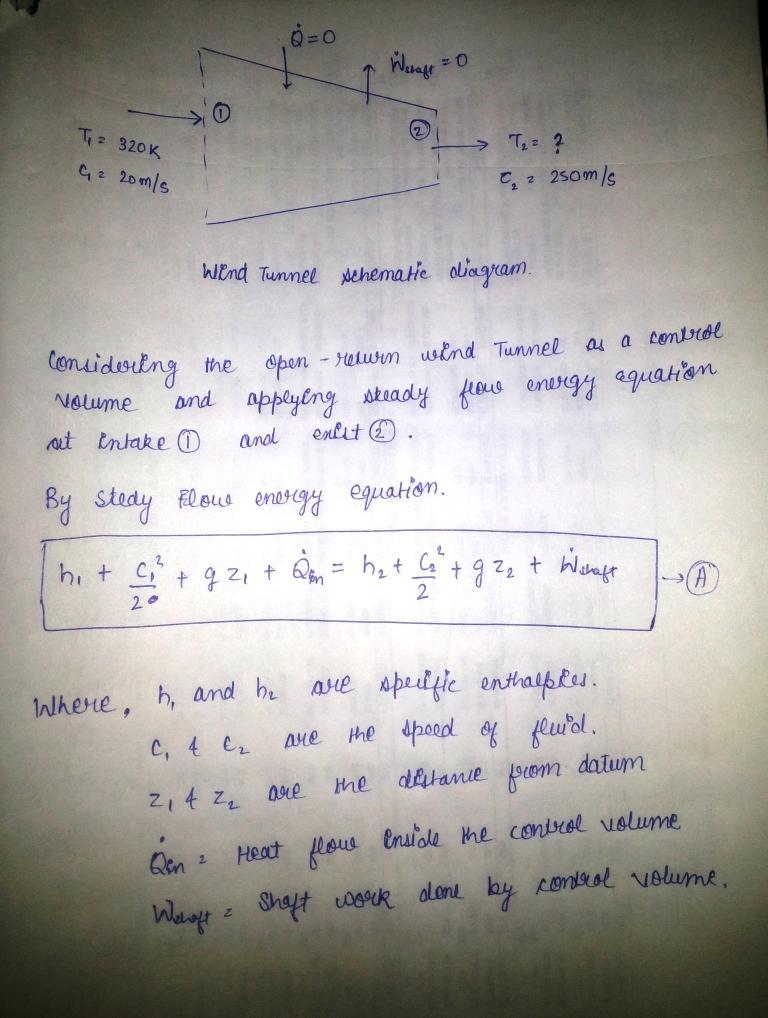 Q̇ = 0
Ẇshaft = 0
①
T₁ = 320K
C₁ = 20m/s
②
T₂ = ?
C₂ = 250m/s
Wind Tunnel schematic diagram.
Considering the open-return wind Tunnel as a control
volume and applying steady flow energy equation
at intake ① and exist ②.
By Stedy Flow energy equation.
h₁ + C₁²/2 + g z₁ + Q̇in = h₂ + C₂²/2 + g z₂ + Ẇshaft → Ⓐ
Where, h₁ and h₂ are specific enthalpies.
C₁ & C₂ are the speed of fluid.
z₁ & z₂ are the distance from datum
Q̇in = Heat flow inside the control volume
Wshaft = Shaft work done by control volume.